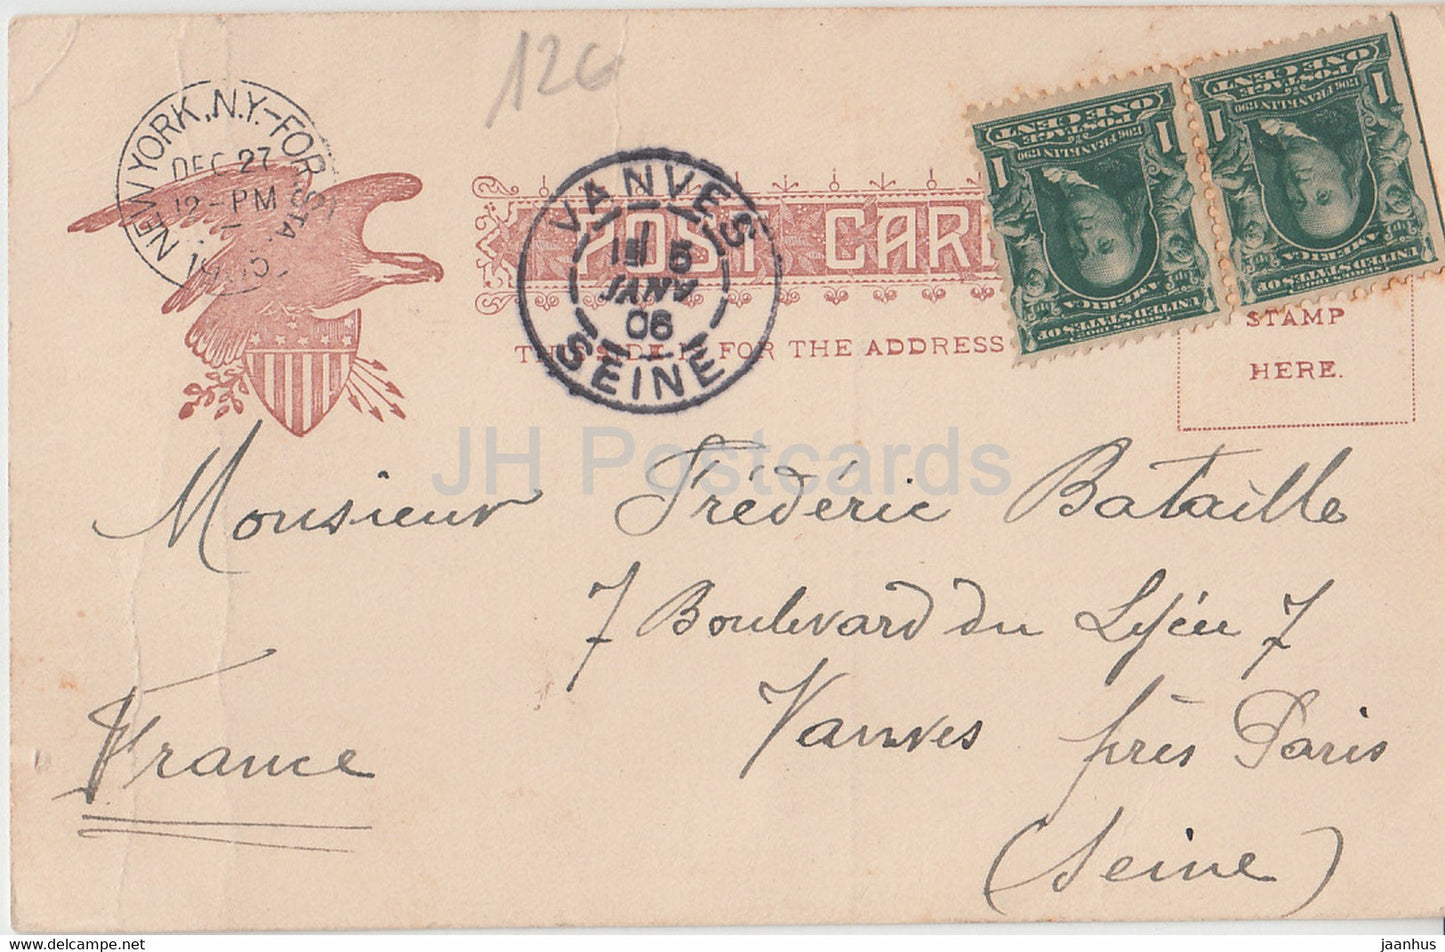 126
NEW YORK, N.Y.-FOR. STA.
DEC 27
12-PM
1905
POST CARD
VANVES
15 5
JANV
06
SEINE
THIS SIDE IS FOR THE ADDRESS
1 1
POSTAGE
ONE CENT
1706 FRANKLIN 1790
UNITED STATES OF
AMERICA
1 1
POSTAGE
ONE CENT
1706 FRANKLIN 1790
UNITED STATES OF
AMERICA
STAMP
HERE.
JH Postcards
Monsieur Frédéric Bataille
7 Boulevard du Lycée 7
Vanves près Paris
(Seine)
France
www.delcampe.net
jaanhus